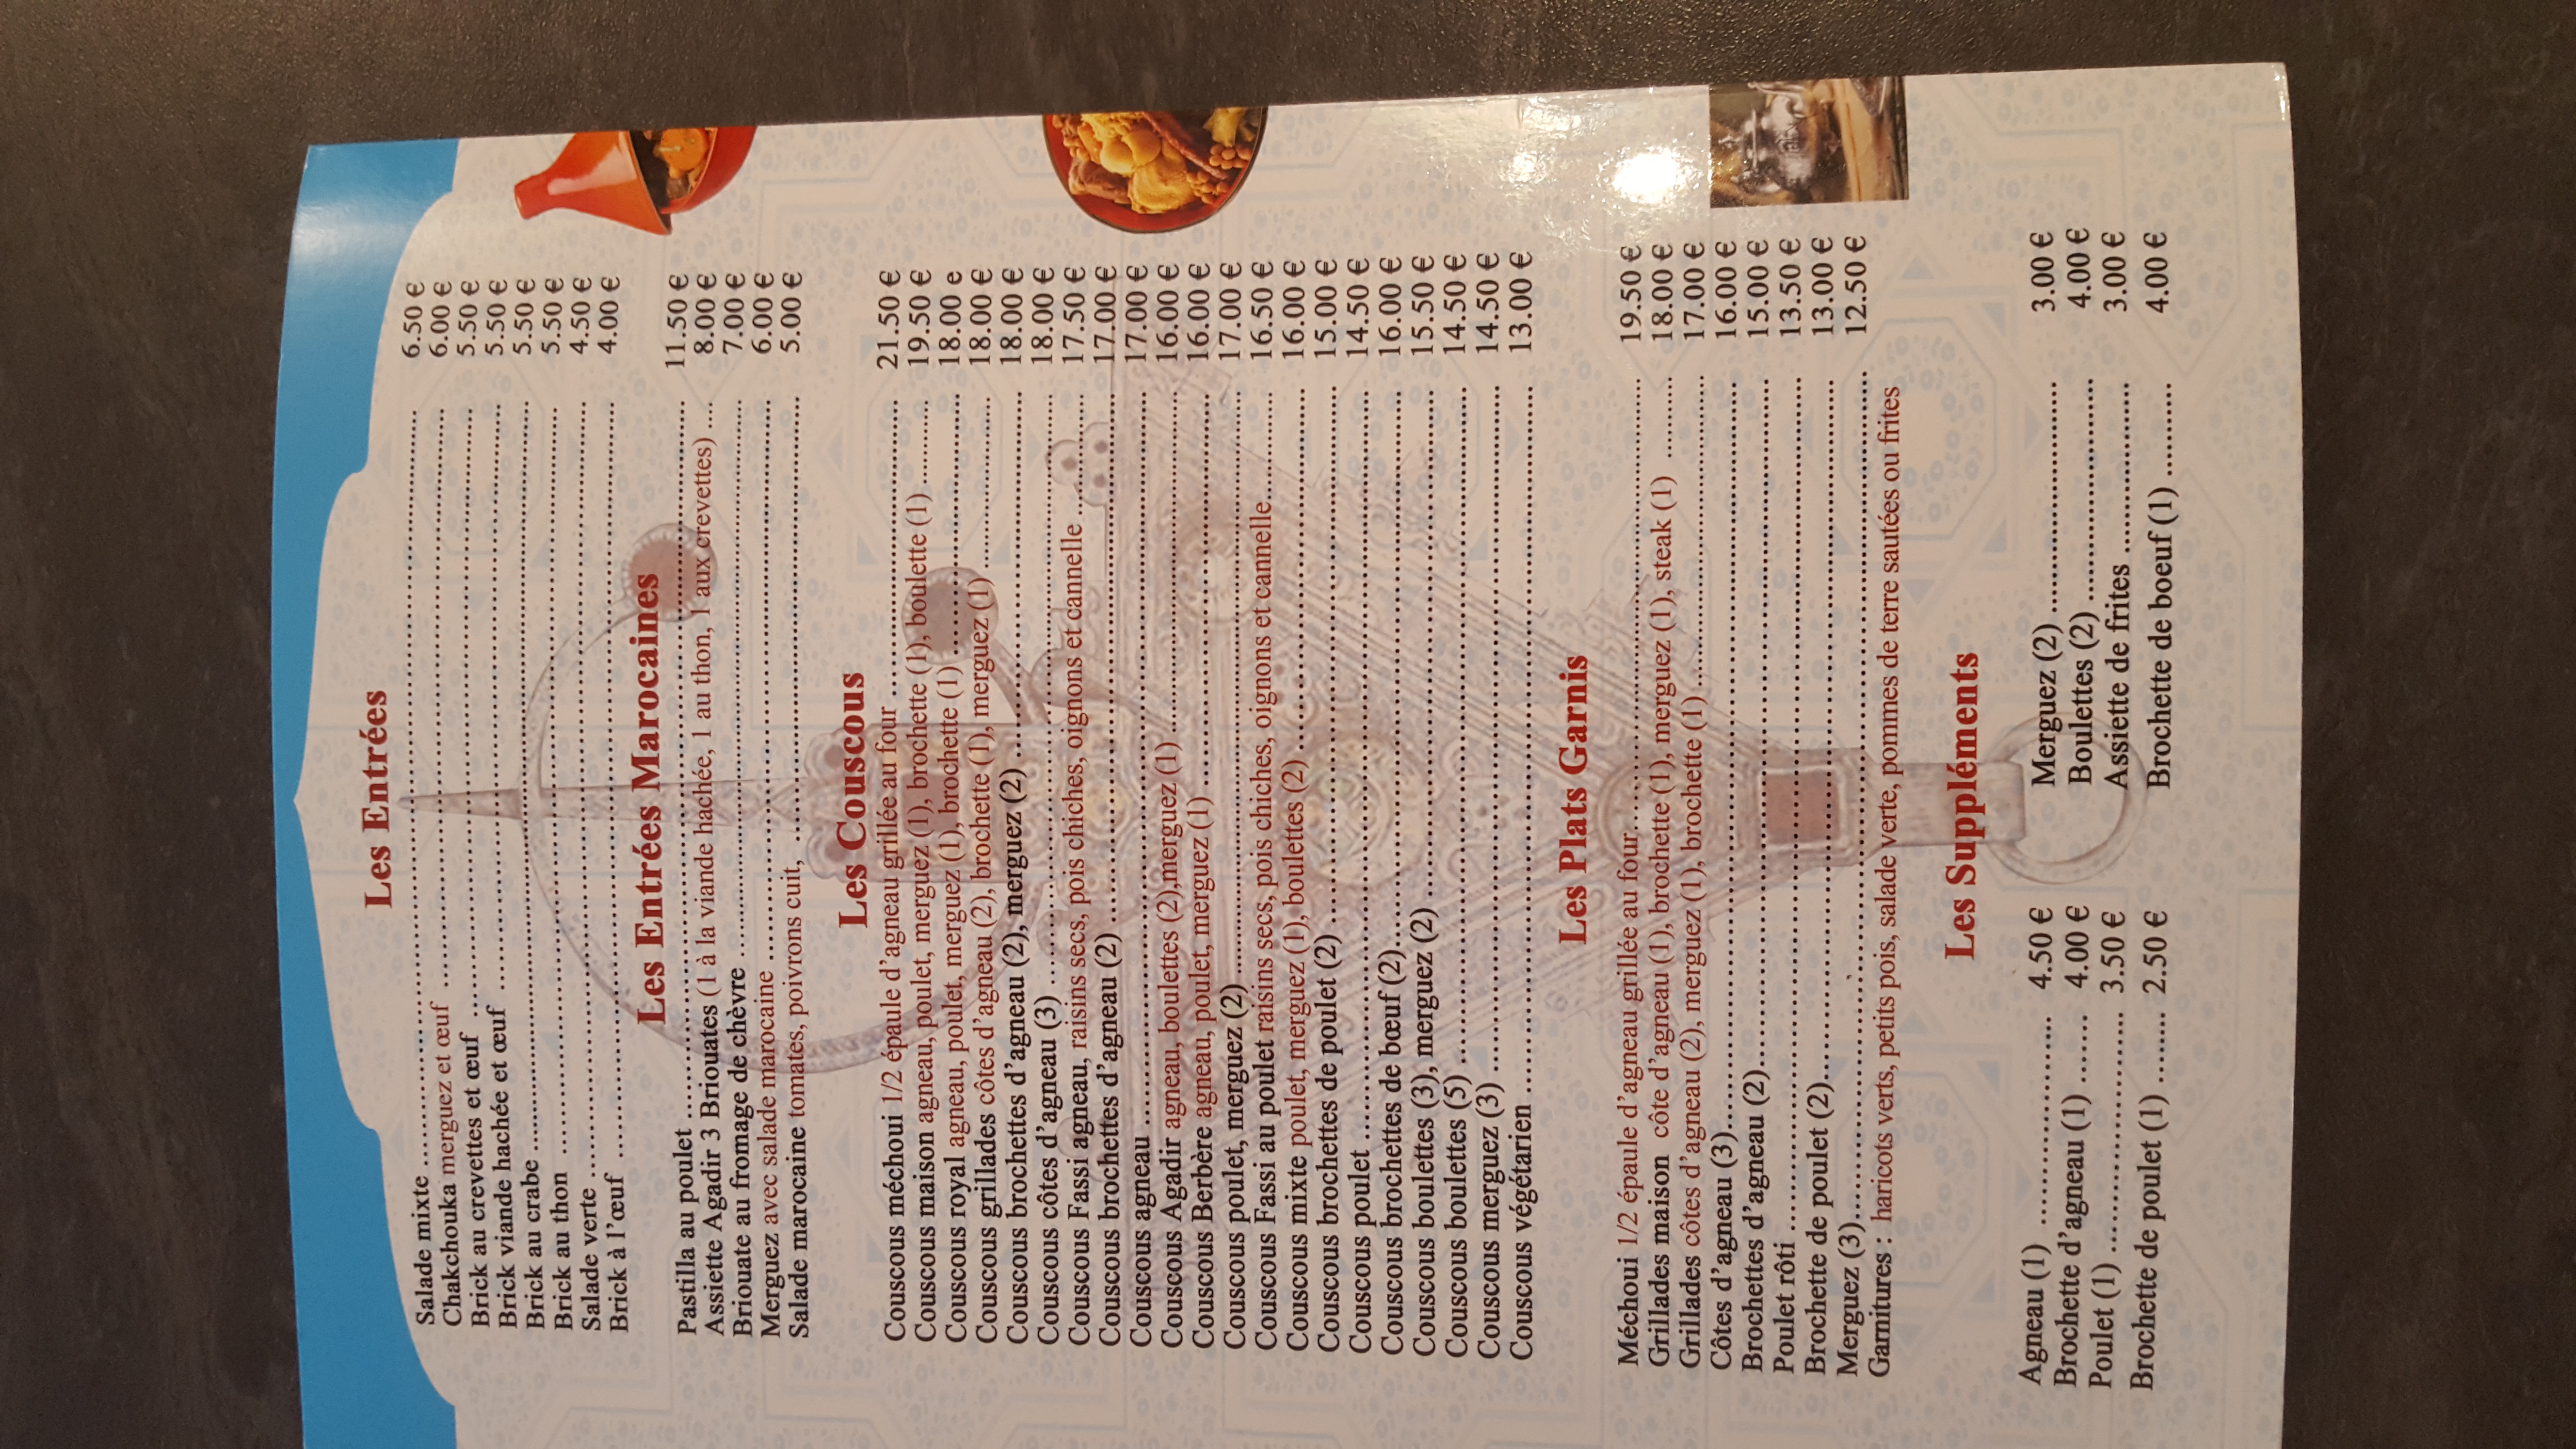 Les Entrées
Salade mixte 6.50 €
Chakchouka merguez et œuf 6.00 €
Brick au crevettes et œuf 5.50 €
Brick viande hachée et œuf 5.50 €
Brick au crabe 5.50 €
Brick au thon 5.50 €
Salade verte 4.50 €
Brick à l'œuf 4.00 €
Les Entrées Marocaines
Pastilla au poulet 11.50 €
Assiette Agadir 3 Briouates (1 à la viande hachée, 1 au thon, 1 aux crevettes) 8.00 €
Briouate au fromage de chèvre 7.00 €
Merguez avec salade marocaine 6.00 €
Salade marocaine tomates, poivrons cuit, 5.00 €
Les Couscous
Couscous méchoui 1/2 épaule d'agneau grillée au four 21.50 €
Couscous maison agneau, poulet, merguez (1), brochette (1), boulette (1) 19.50 €
Couscous royal agneau, poulet, merguez (1), brochette (1) 18.00 e
Couscous grillades côtes d'agneau (2), brochette (1), merguez (1) 18.00 €
Couscous brochettes d'agneau (2), merguez (2) 18.00 €
Couscous côtes d'agneau (3) 18.00 €
Couscous Fassi agneau, raisins secs, pois chiches, oignons et cannelle 17.50 €
Couscous brochettes d'agneau (2) 17.00 €
Couscous agneau 17.00 €
Couscous Agadir agneau, boulettes (2),merguez (1) 16.00 €
Couscous Berbère agneau, poulet, merguez (1) 16.00 €
Couscous poulet, merguez (2) 17.00 €
Couscous Fassi au poulet raisins secs, pois chiches, oignons et cannelle 16.50 €
Couscous mixte poulet, merguez (1), boulettes (2) 16.00 €
Couscous brochettes de poulet (2) 15.00 €
Couscous poulet 14.50 €
Couscous brochettes de bœuf (2) 16.00 €
Couscous boulettes (3), merguez (2) 15.50 €
Couscous boulettes (5) 14.50 €
Couscous merguez (3) 14.50 €
Couscous végétarien 13.00 €
Les Plats Garnis
Méchoui 1/2 épaule d'agneau grillée au four 19.50 €
Grillades maison côte d'agneau (1), brochette (1), merguez (1), steak (1) 18.00 €
Grillades côtes d'agneau (2), merguez (1), brochette (1) 17.00 €
Côtes d'agneau (3) 16.00 €
Brochettes d'agneau (2) 15.00 €
Poulet rôti 13.50 €
Brochette de poulet (2) 13.00 €
Merguez (3) 12.50 €
Garnitures : haricots verts, petits pois, salade verte, pommes de terre sautées ou frites
Les Suppléments
Agneau (1) 4.50 € Merguez (2) 3.00 €
Brochette d'agneau (1) 4.00 € Boulettes (2) 4.00 €
Poulet (1) 3.50 € Assiette de frites 3.00 €
Brochette de poulet (1) 2.50 € Brochette de boeuf (1) 4.00 €